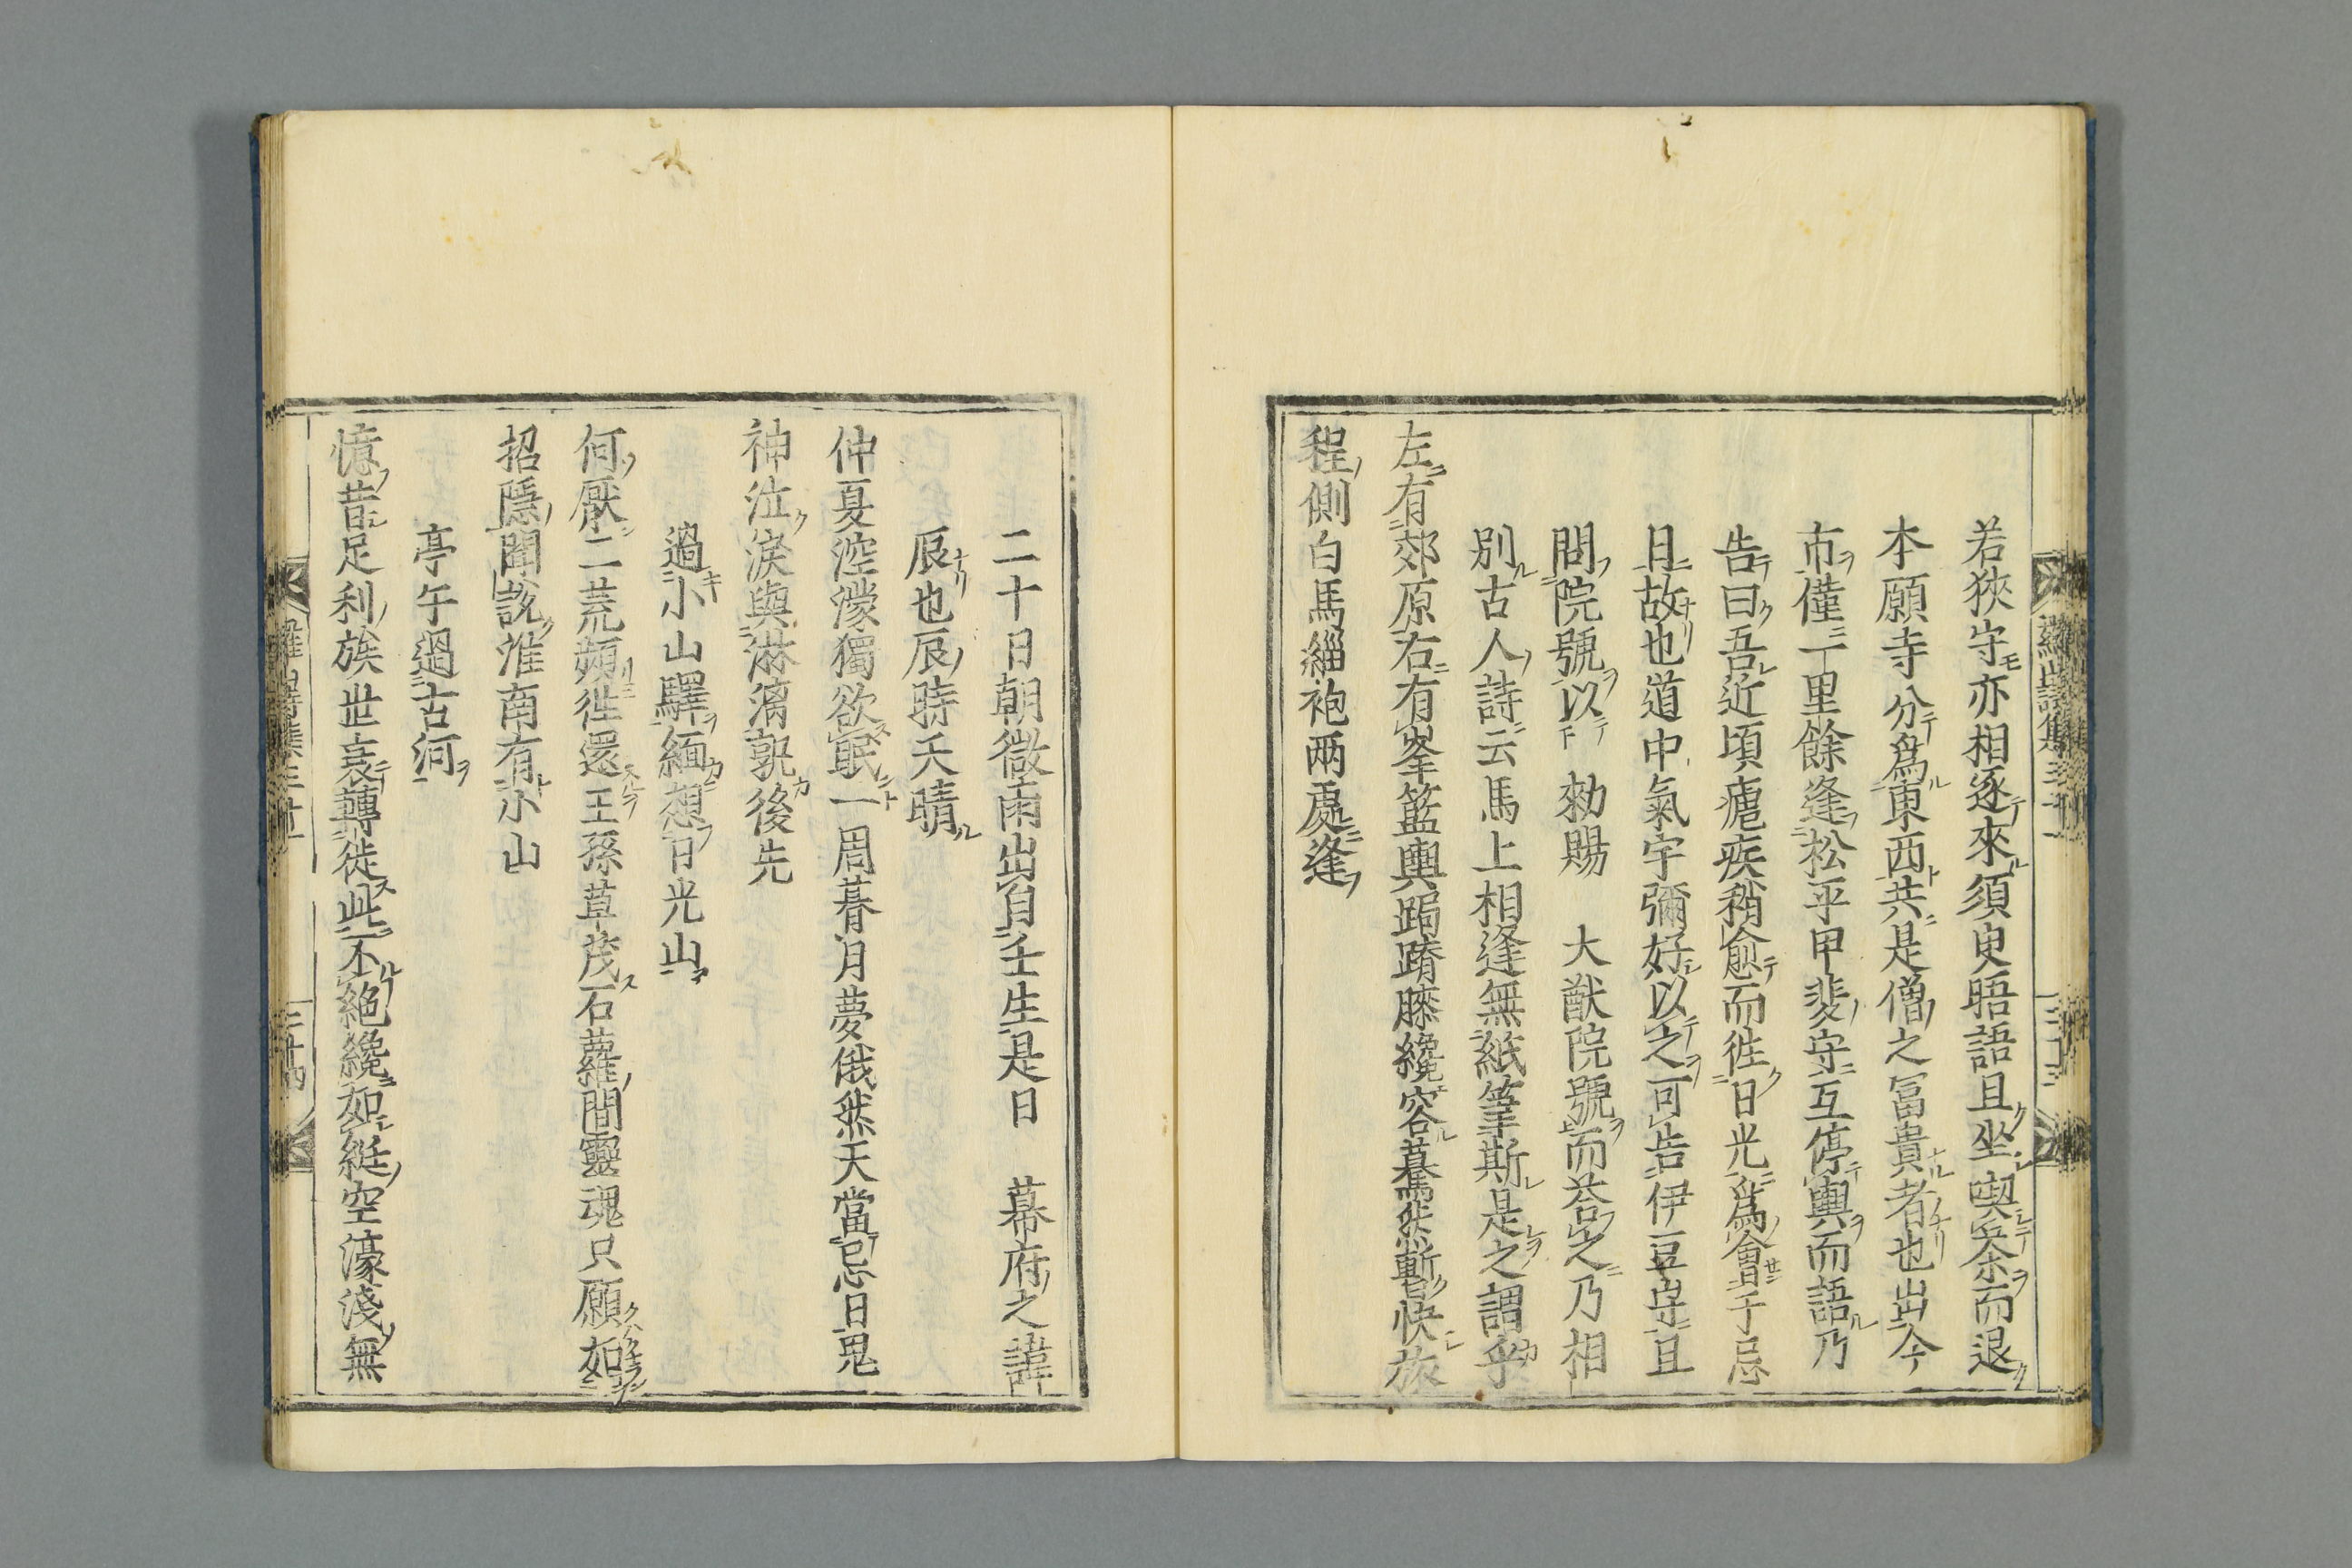 若狹守亦相逐來須臾晤語且坐喫茶而退
本願寺分爲東西共是僧之冨貴者也出今
市僅一里餘逢松平甲斐守互停輿而語乃
告曰吾近頃瘧疾稍愈而徃日光爲會于忌
日故也道中氣宇彌好以之可告伊豆守且
問院號以下 勅賜 大猷院號而荅之乃相
別古人詩云馬上相逢無紙筆斯是之謂乎
左有郊原右有峯籃輿跼蹐膝纔容驀然暫快旅
程側白馬緇袍兩處逢
二十日朝微雨出自壬生是日 幕府之諱
辰也辰時天晴
仲夏涳濛獨欲眠一周暮月夢俄然天當忌日鬼
神泣淚與淋漓孰後先
過小山驛緬想日光山
何厭二荒頻徃還王孫草茂石蘿間靈魂只願如
招隱聞說淮南有小山
亭午過古河
憶昔足利族世哀轉徙此不絕纔如綖空濠淺無
羅山詩集
三十四